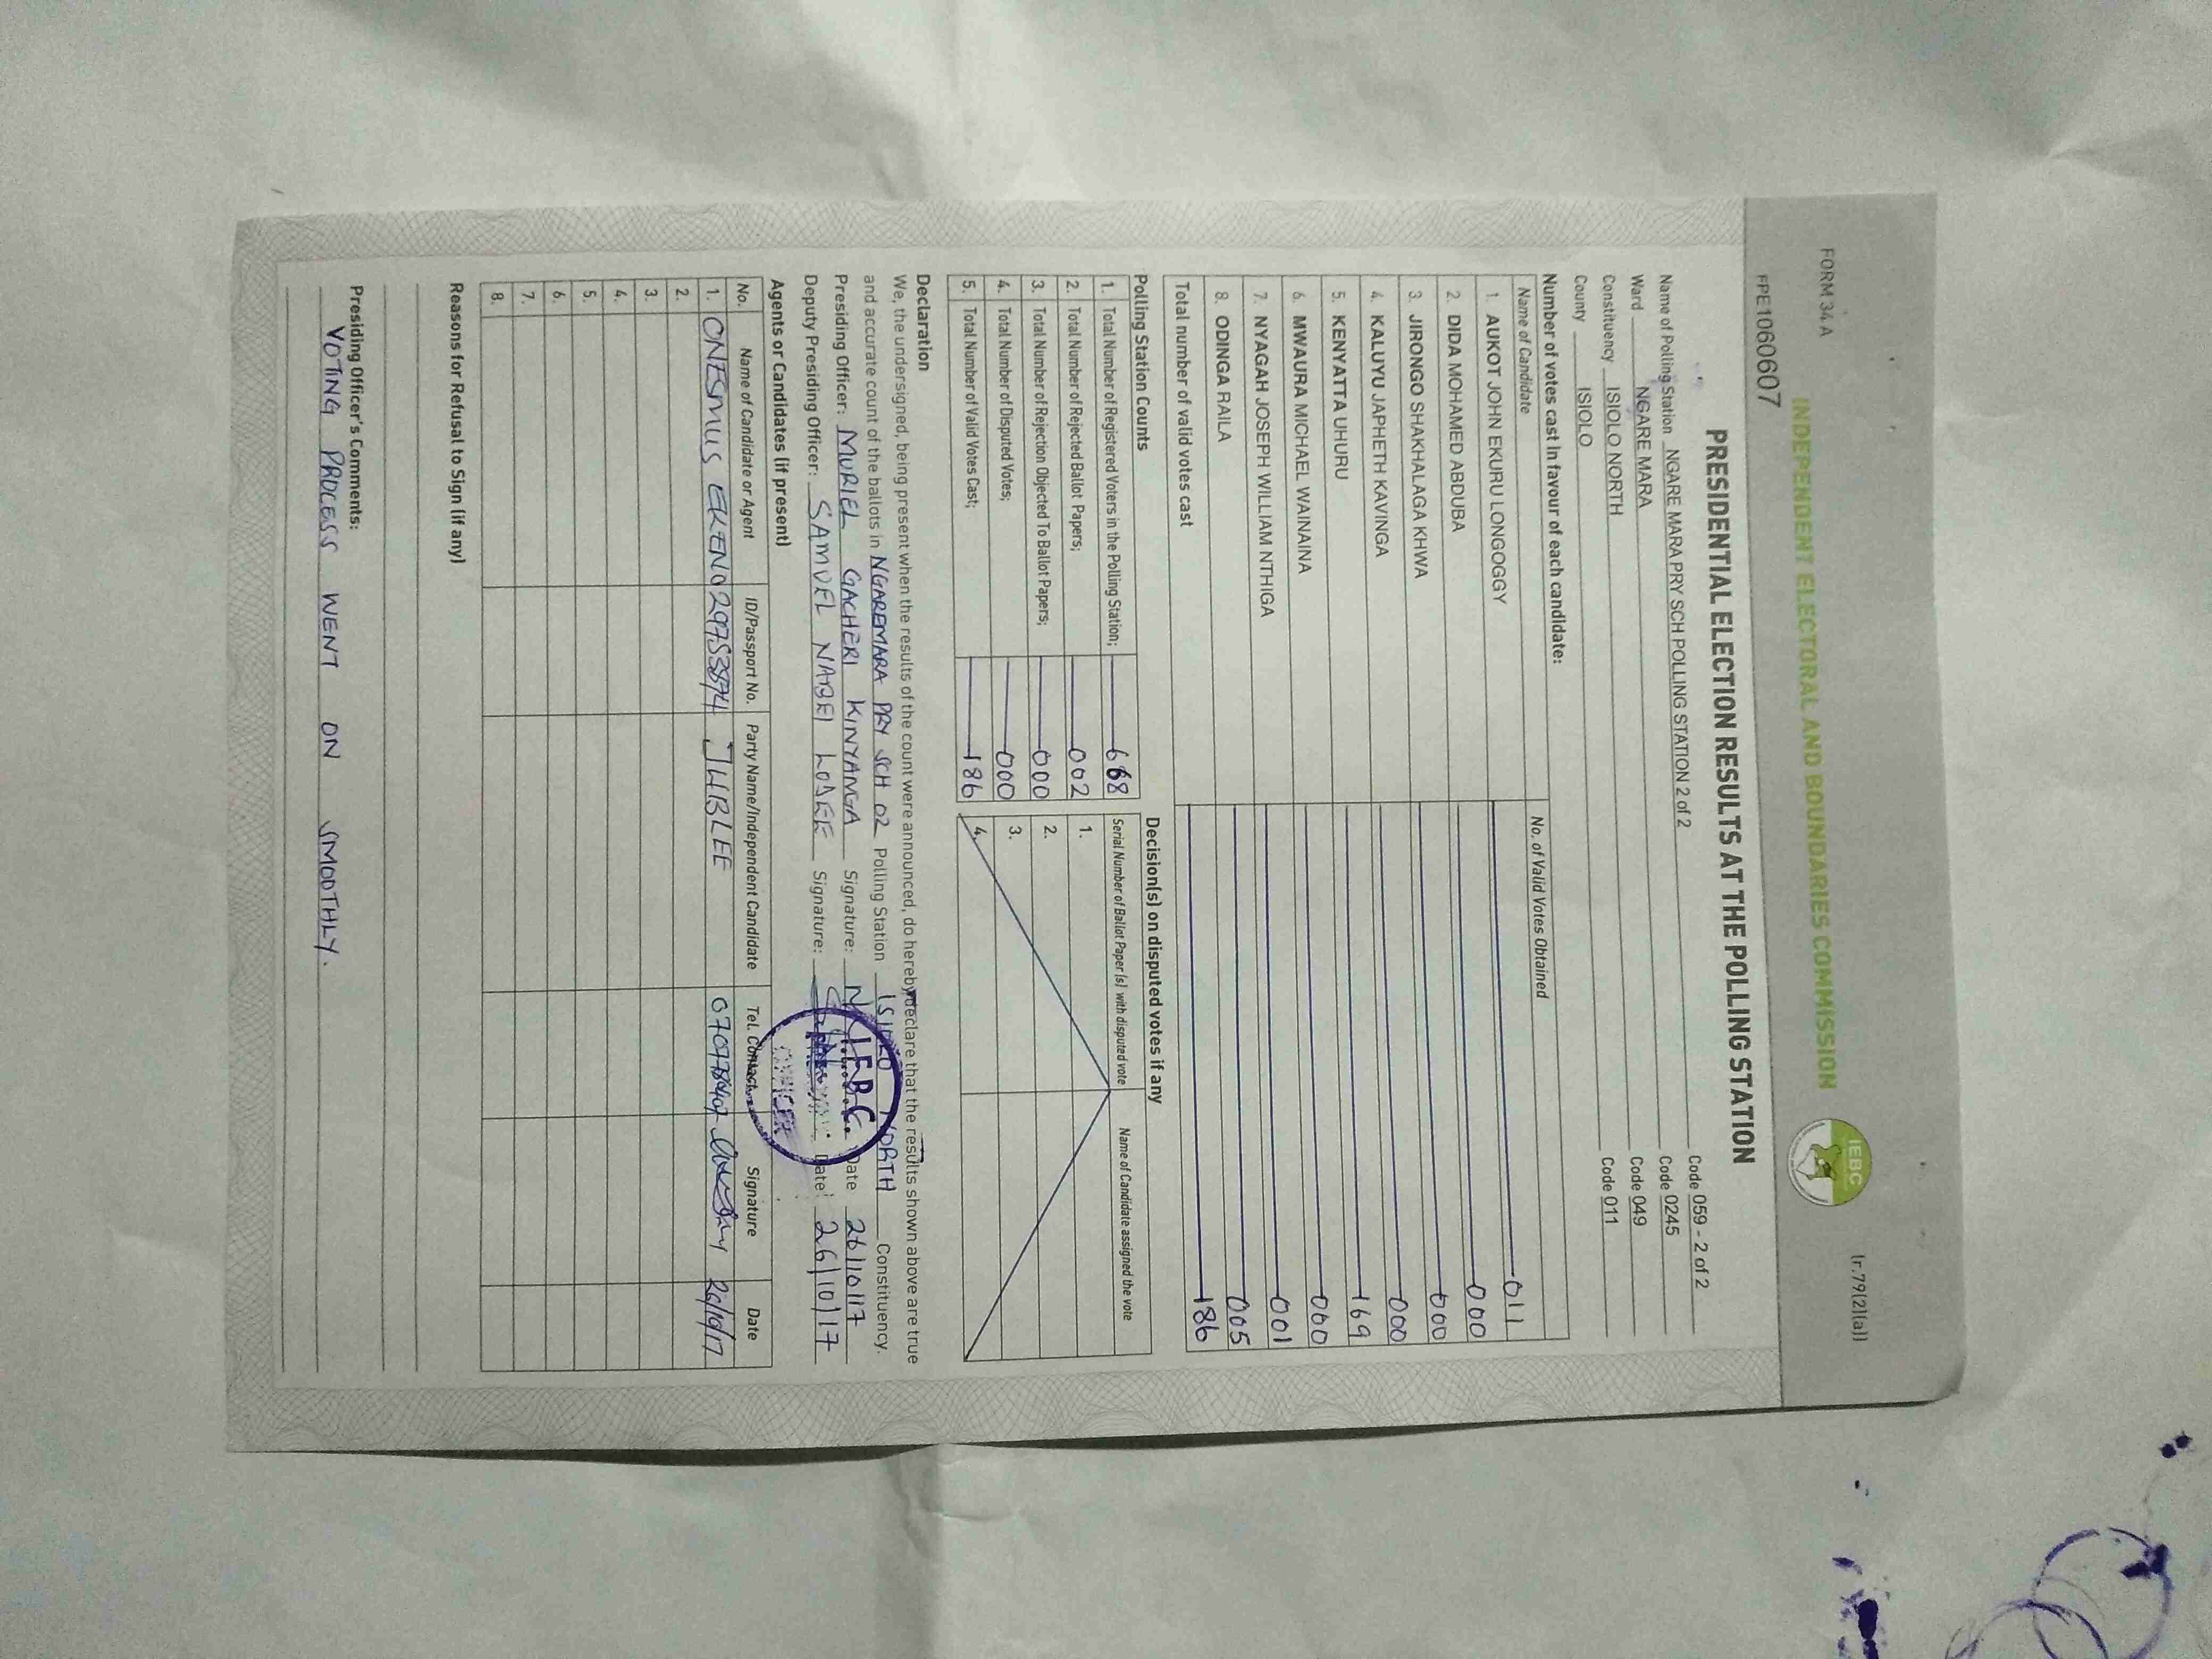 FORM 34 A
(r.79(2)(a))
INDEPENDENT ELECTORAL AND BOUNDARIES COMMISSION
IEBC
FPE1060607
PRESIDENTIAL ELECTION RESULTS AT THE POLLING STATION
Name of Polling Station NGARE MARA PRY SCH POLLING STATION 2 of 2 Code 059 - 2 of 2
Ward NGARE MARA Code 0245
Constituency ISIOLO NORTH Code 049
County ISIOLO Code 011
Number of votes cast in favour of each candidate:
Name of Candidate No. of Valid Votes Obtained
1. AUKOT JOHN EKURU LONGOGGY 011
2. DIDA MOHAMED ABDUBA 000
3. JIRONGO SHAKHALAGA KHWA 000
4. KALUYU JAPHETH KAVINGA 000
5. KENYATTA UHURU 169
6. MWAURA MICHAEL WAINAINA 000
7. NYAGAH JOSEPH WILLIAM NTHIGA 001
8. ODINGA RAILA 005
Total number of valid votes cast 186
Polling Station Counts
1. Total Number of Registered Voters in the Polling Station; 668
2. Total Number of Rejected Ballot Papers; 002
3. Total Number of Rejection Objected To Ballot Papers; 000
4. Total Number of Disputed Votes; 000
5. Total Number of Valid Votes Cast; 186
Decision(s) on disputed votes if any
Serial Number of Ballot Paper (s) with disputed vote Name of Candidate assigned the vote
1.
2.
3.
4.
Declaration
We, the undersigned, being present when the results of the count were announced, do hereby declare that the results shown above are true
and accurate count of the ballots in NGAREMARA PRY SCH 02 Polling Station ISIOLO NORTH Constituency.
Presiding Officer: MURIEL GACHERI KINYANGA Signature: Date 26/10/17
Deputy Presiding Officer: SAMUEL NABEI LOSEE Signature: Date: 26/10/17
I.E.B.C.
OFFICER
Agents or Candidates (if present)
No. Name of Candidate or Agent ID/Passport No. Party Name/Independent Candidate Tel. Contact Signature Date
1. ONESMUS EKENO 29753874 JUBLEE 26/10/17
2.
3.
4.
5.
6.
7.
8.
Reasons for Refusal to Sign (if any)
Presiding Officer's Comments:
VOTING PROCESS WENT ON SMOOTHLY.